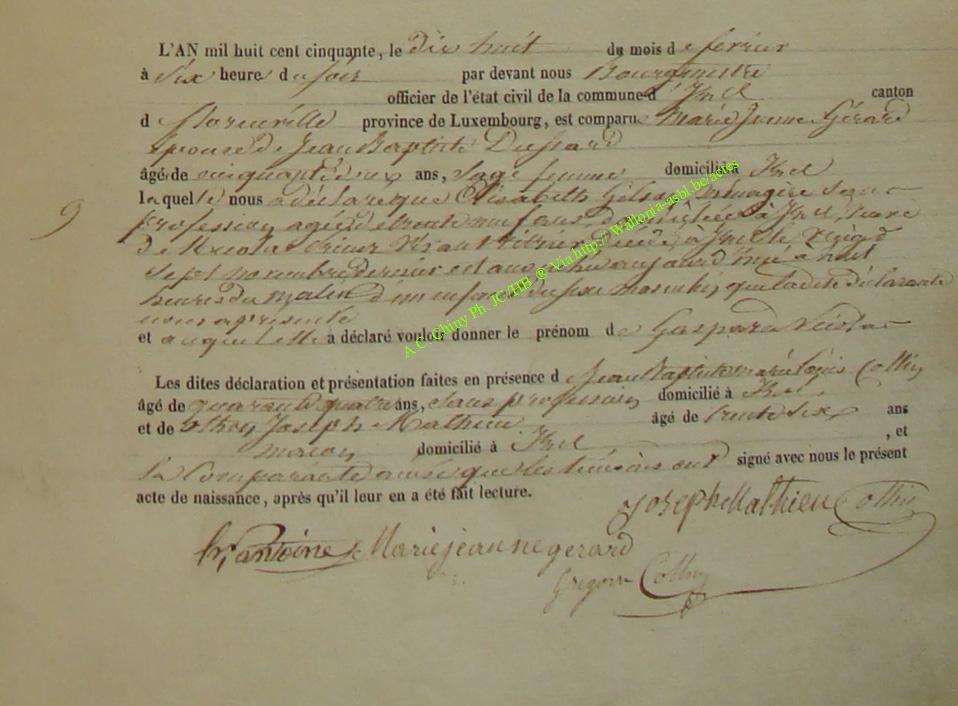 L'AN mil huit cent cinquante, le dix huit du mois de fevrier
à Six heures du soir par devant nous Bourgmestre
officier de l'état civil de la commune d'Izel canton
d florenville province de Luxembourg, est comparue Marie Jeanne Gérard
épouse de Jean Baptiste Dussard
âgée de cinquante deux ans, Sage femme domiciliée à Izel
laquelle nous a déclaré que Elisabeth ménagère sans
profession agée de trente neuf ans, domiciliée à Izel, veuve
de Nicolas décédé à Izel le vingt
Sept novembre dernier est accouchée aujourd'hui à huit
heures du matin d'un enfant du sexe masculin que ladite déclarante
nous a présenté
et auquel elle a déclaré vouloir donner le prénom de Gaspard Nicolas
Les dites déclaration et présentation faites en présence de Jean Baptiste marie Louis Collin
âgé de quarante quatre ans, sans profession domicilié à Izel
et de Joseph Mathieu âgé de trente Six ans
maçon domicilié à Izel , et
la Comparante ainsi que les témoins ont signé avec nous le présent
acte de naissance, après qu'il leur en a été fait lecture.
Joseph Mathieu Collin
antoine Mariejeanne gerard
Gregoire Collin
9
A.C. Chiny Ph. JC/HB ® Via http:// Wallonia-asbl.be/actes